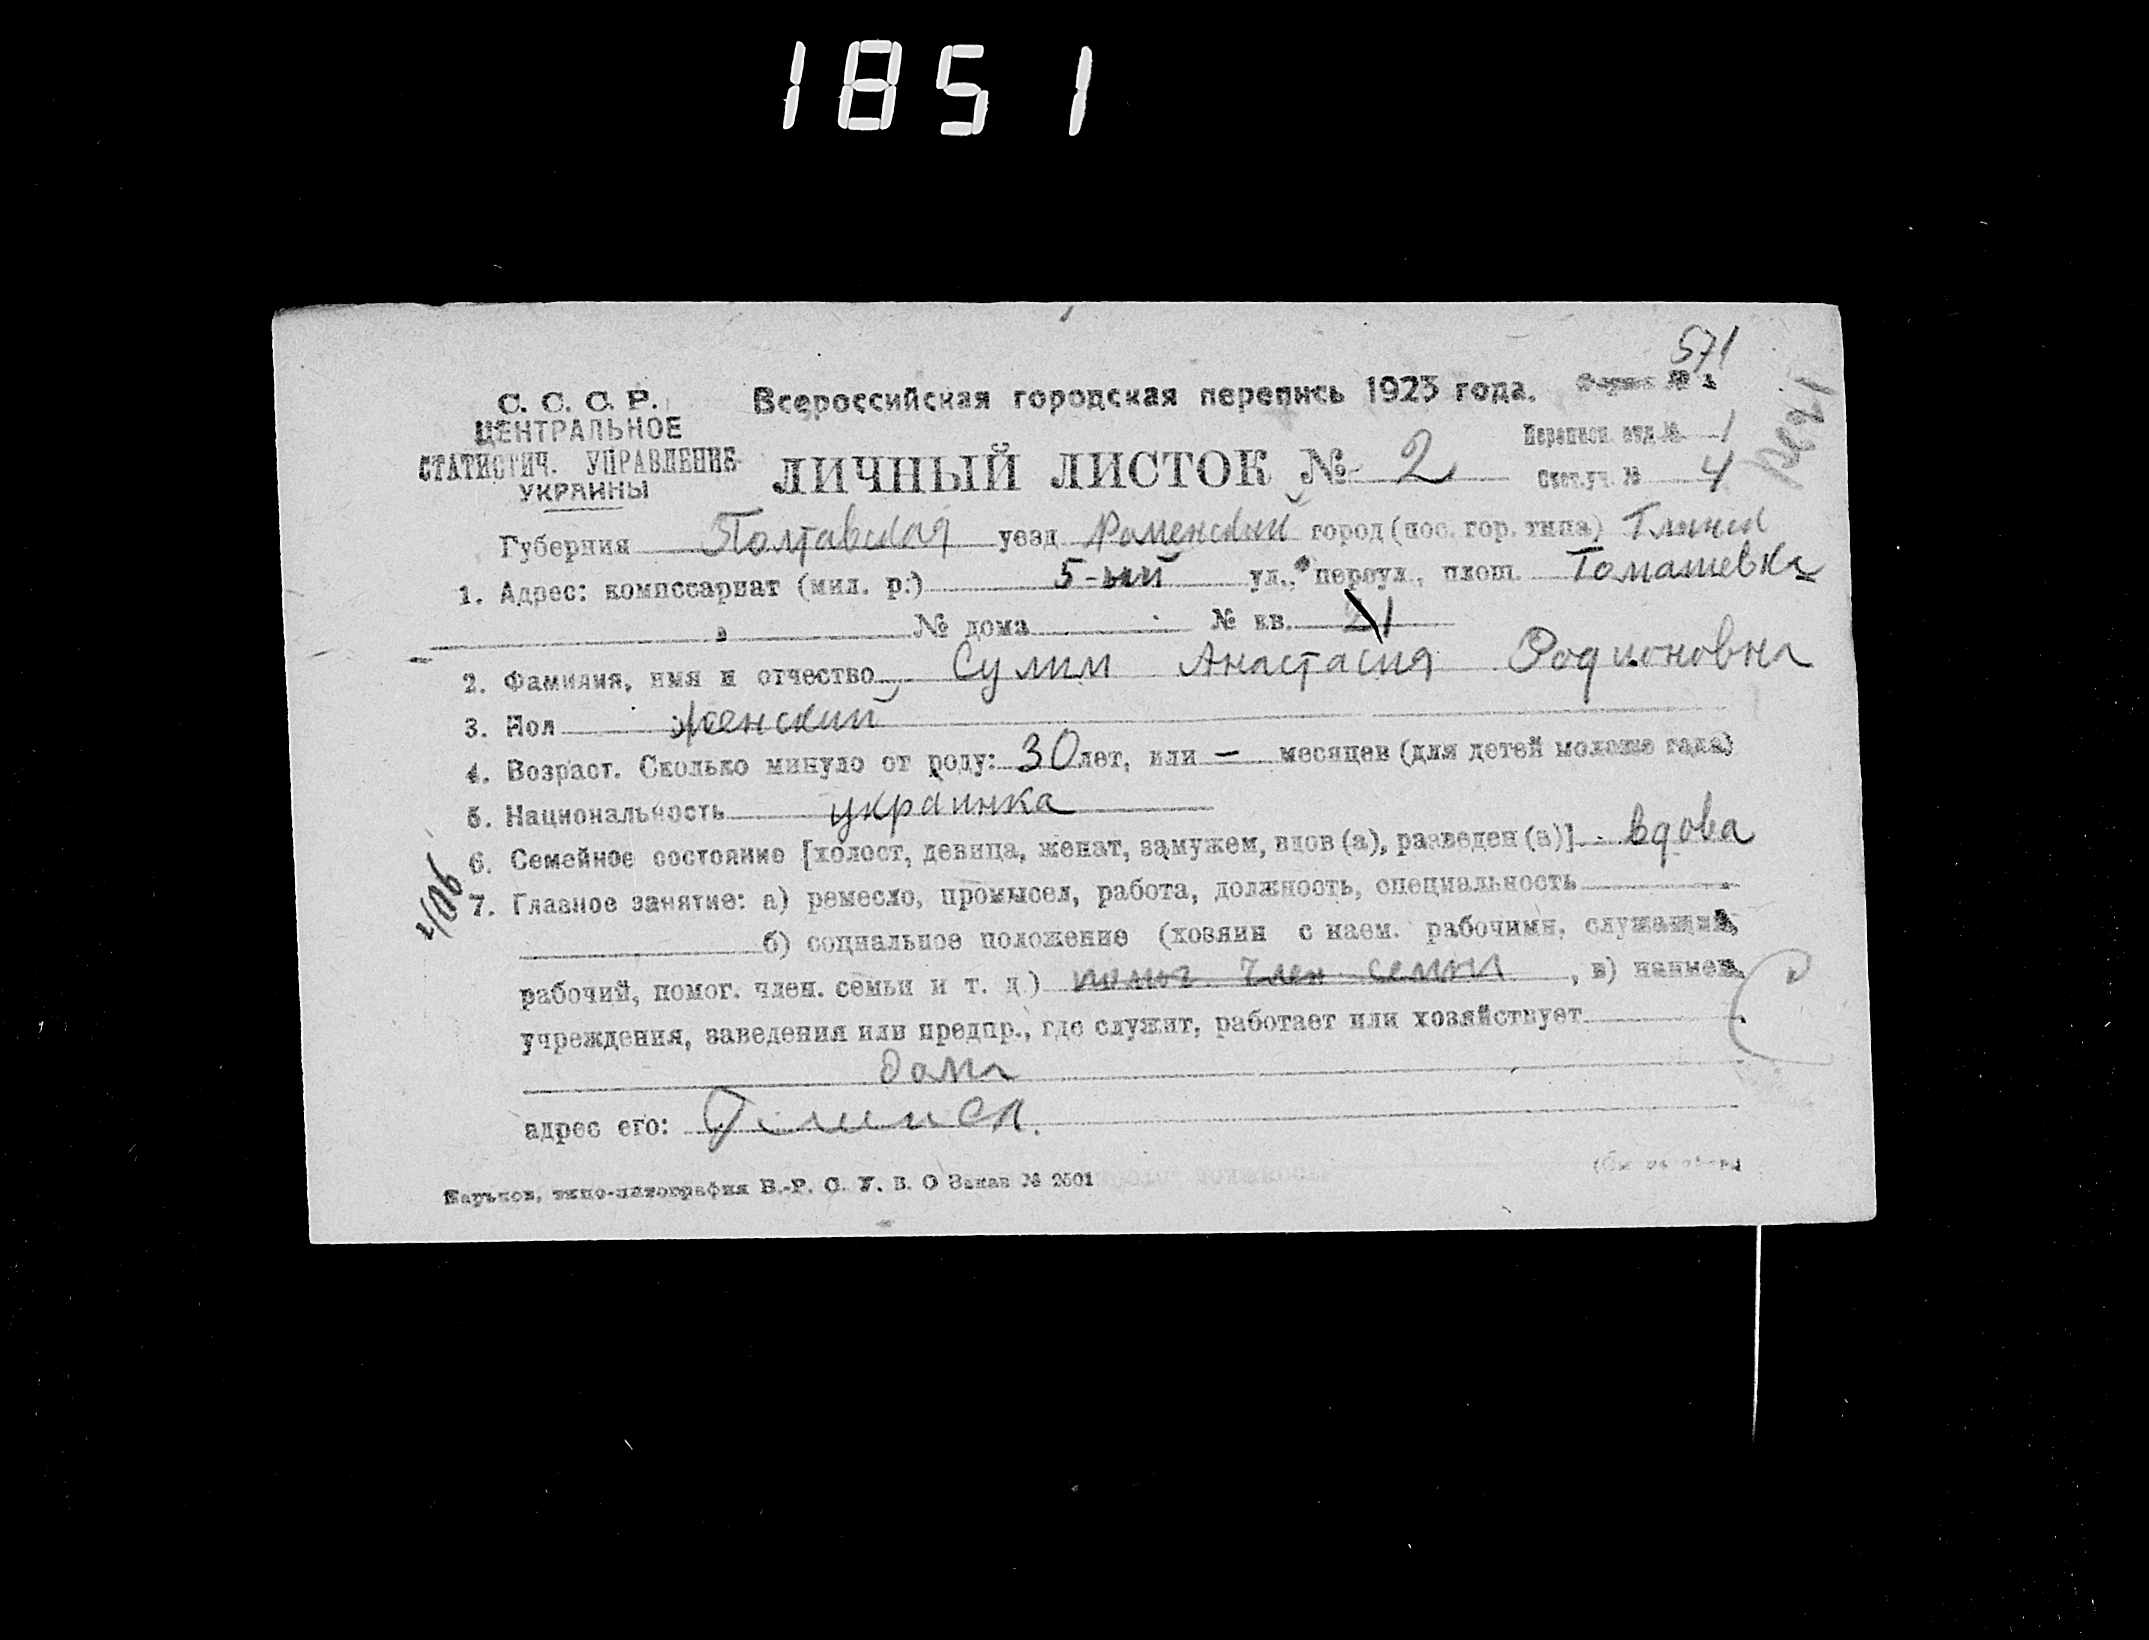 1851
571
С. С. С. Р. Всероссийская городская перепись 1923 года. Форма № 1
ЦЕНТРАЛЬНОЕ Переписн. отд. № 1
СТАТИСТИЧ. УПРАВЛЕНИЕ ЛИЧНЫЙ ЛИСТОК № 2 Счетн. уч. № 4
УКРАИНЫ
Губерния Полтавская уезд Роменский город (пос. гор. типа) Глинск
1. Адрес: комиссариат (мил. р.) 5-ый ул., переул., площ. Томашевка
№ дома № кв.
2. Фамилия, имя и отчество Сулим Анастасия Родионовна
3. Пол женский
4. Возраст. Сколько минуло от роду: 30 лет, или – месяцев (для детей моложе года)
5. Национальность украинка
6. Семейное состояние [холост, девица, женат, замужем, вдов (а), разведен (а)] вдова
7. Главное занятие: а) ремесло, промысел, работа, должность, специальность
б) социальное положение (хозяин с наем. рабочими, служащий,
рабочий, помог. член. семьи и т. д.) помог. член семьи , в) наимен.
учреждения, заведения или предпр., где служит, работает или хозяйствует
дома
адрес его: Глинск.
Харьков, типо-литография В.-Р. С. У. В. О Заказ № 2501